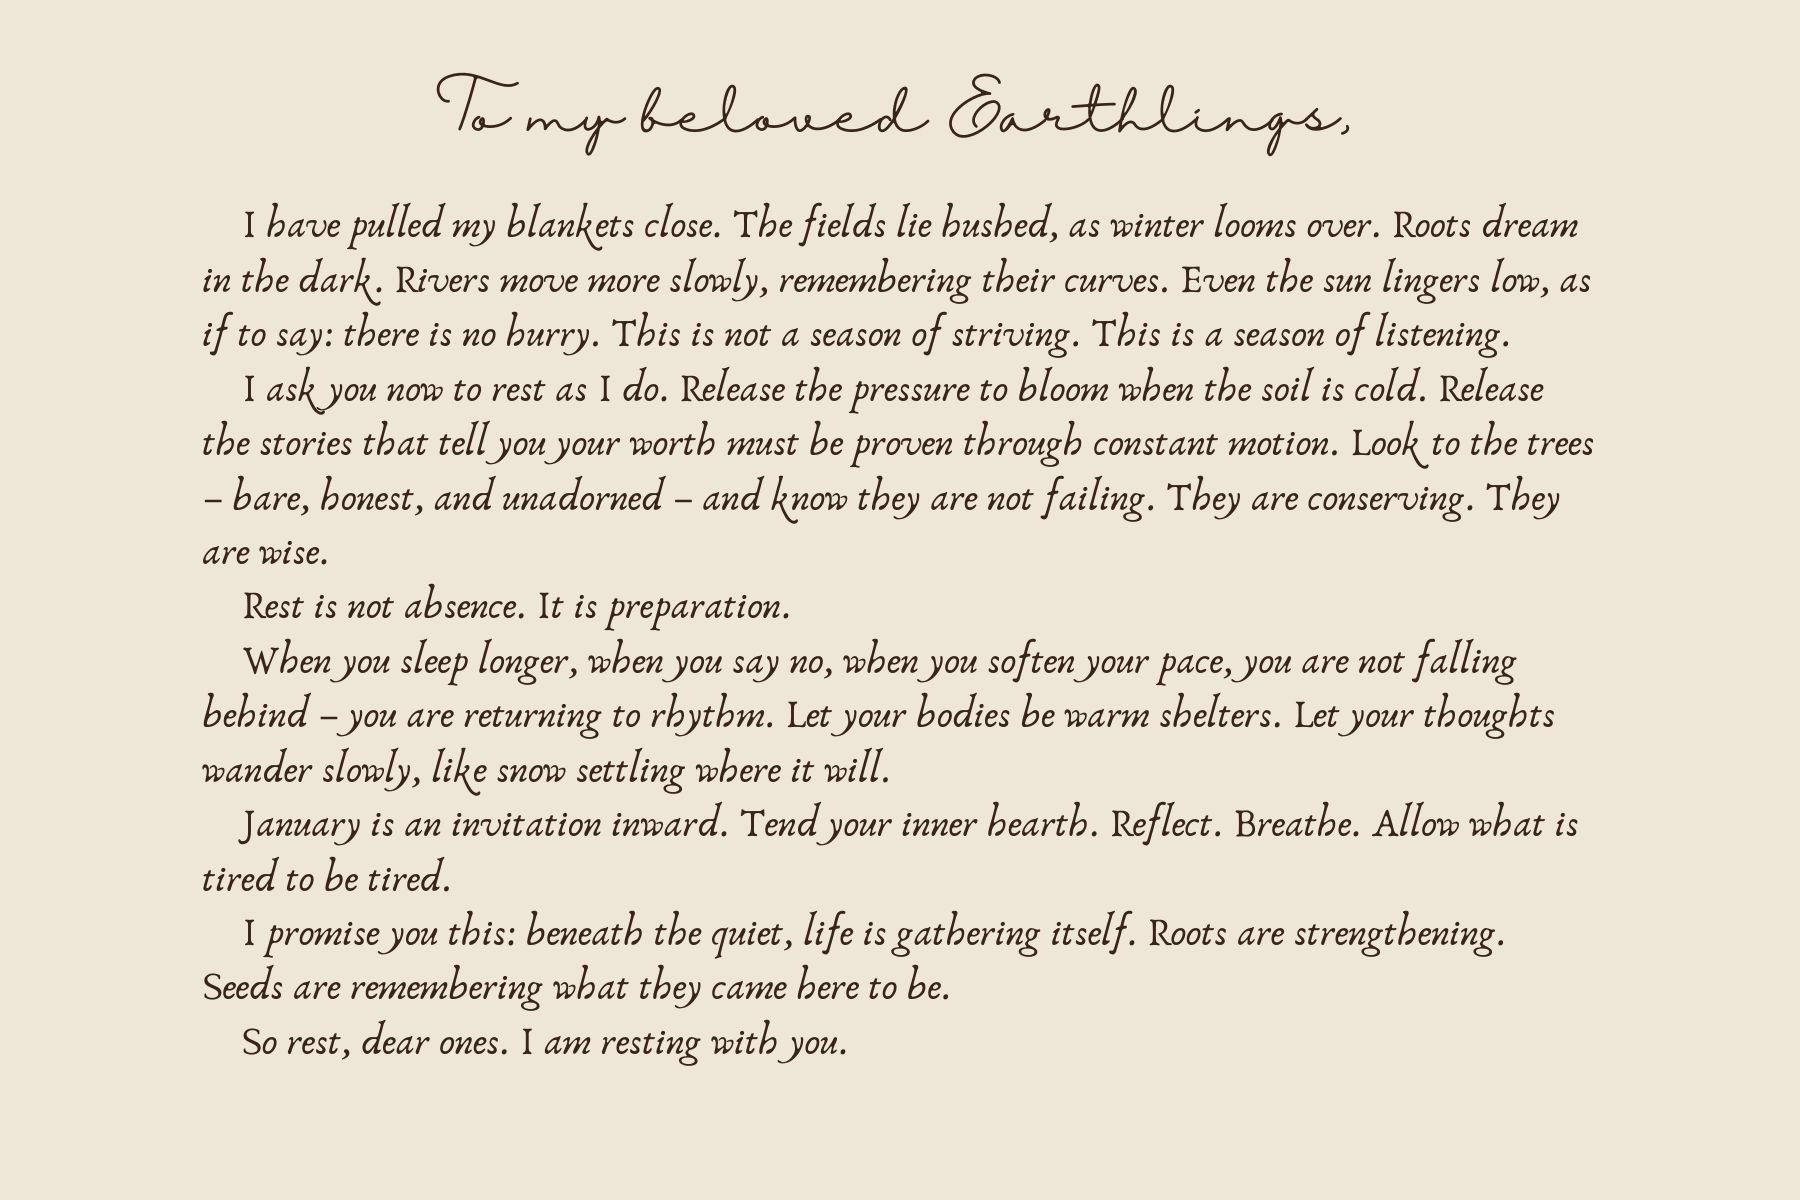 To my beloved Earthlings,
I have pulled my blankets close. The fields lie hushed, as winter looms over. Roots dream
in the dark. Rivers move more slowly, remembering their curves. Even the sun lingers low, as
if to say: there is no hurry. This is not a season of striving. This is a season of listening.
I ask you now to rest as I do. Release the pressure to bloom when the soil is cold. Release
the stories that tell you your worth must be proven through constant motion. Look to the trees
– bare, honest, and unadorned – and know they are not failing. They are conserving. They
are wise.
Rest is not absence. It is preparation.
When you sleep longer, when you say no, when you soften your pace, you are not falling
behind – you are returning to rhythm. Let your bodies be warm shelters. Let your thoughts
wander slowly, like snow settling where it will.
January is an invitation inward. Tend your inner hearth. Reflect. Breathe. Allow what is
tired to be tired.
I promise you this: beneath the quiet, life is gathering itself. Roots are strengthening.
Seeds are remembering what they came here to be.
So rest, dear ones. I am resting with you.